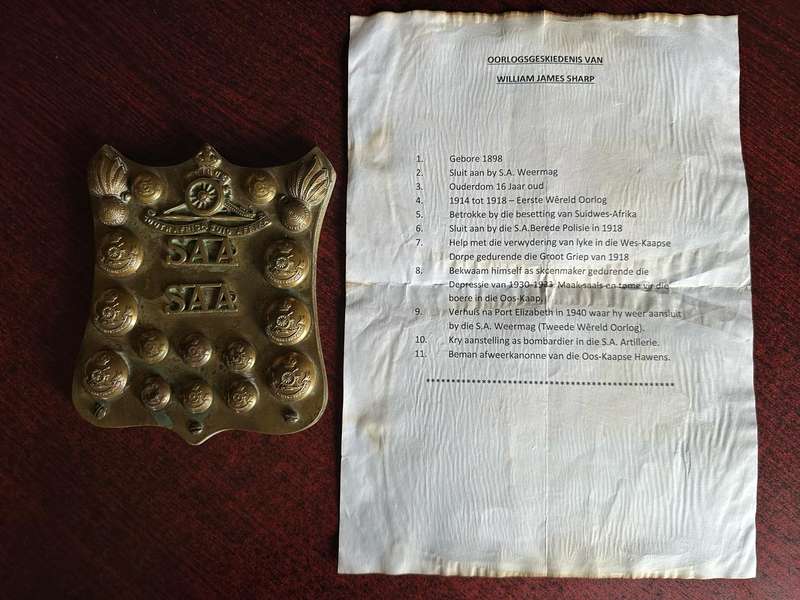 SAA
SAA
OORLOGSGESKIEDENIS VAN
WILLIAM JAMES SHARP
1. Gebore 1898
2. Sluit aan by S.A. Weermag
3. Ouderdom 16 Jaar oud
4. 1914 tot 1918 – Eerste Wêreld Oorlog
5. Betrokke by die besetting van Suidwes-Afrika
6. Sluit aan by die S.A.Berede Polisie in 1918
7. Help met die verwydering van lyke in die Wes-Kaapse
Dorpe gedurende die Groot Griep van 1918
8. Bekwaam himself as skoenmaker gedurende die
Depressie van 1930-1933. Maak saals en tome vir die
boere in die Oos-Kaap.
9. Verhuis na Port Elizabeth in 1940 waar hy weer aansluit
by die S.A. Weermag (Tweede Wêreld Oorlog).
10. Kry aanstelling as bombardier in die S.A. Artillerie.
11. Beman afweerkanonne van die Oos-Kaapse Hawens.